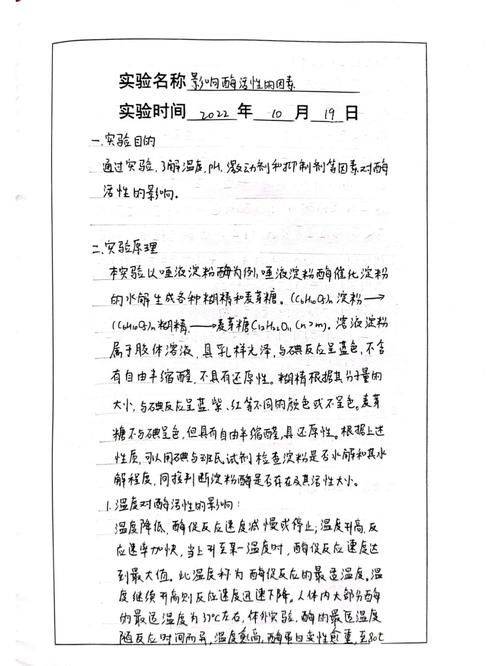 实验名称 影响酶活性的因素
实验时间 2022 年 10 月 19 日
一.实验目的
通过实验,了解温度,pH,激动剂和抑制剂等因素对酶
活性的影响。
二.实验原理
本实验以唾液淀粉酶为例,唾液淀粉酶催化淀粉
的水解生成各种糊精和麦芽糖。(C6H10O5)n 淀粉→
(C6H10O5)m 糊精→麦芽糖C12H22O11 (n>m). 溶液淀粉
属于胶体溶液,具乳样光泽,与碘反应呈蓝色,不含
有自由半缩醛,不具有还原性。糊精根据其分子量的
大小,与碘反应呈蓝.紫、红等不同的颜色或不呈色。麦芽
糖不与碘呈色,但具有自由半缩醛,具还原性。根据上述
性质,可以用碘与班氏试剂检查淀粉是否水解和其水
解程度,间接判断淀粉酶是否存在及其活性大小。
1.温度对酶活性的影响:
温度降低、酶促反应速度减慢或停止;温度升高,反
应速率加快,当上升至某一温度时,酶促反应速度达
到最大值。此温度称为酶促反应的最适温度。温
度继续升高则反应速度迅速下降。人体内大部分酶
的最适温度为37℃左右,体外实验,酶的最适温度
随反应时间而异,温度愈高,酶蛋白变性愈重,至80℃